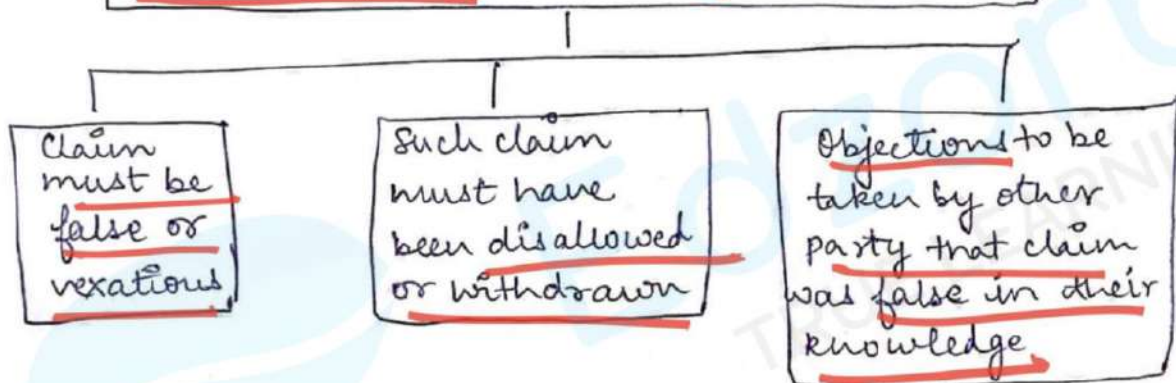 Claim
must be
false or
vexatious
Such claim
must have
been disallowed
or withdrawn
Objections to be
taken by other
party that claim
was false in their
knowledge